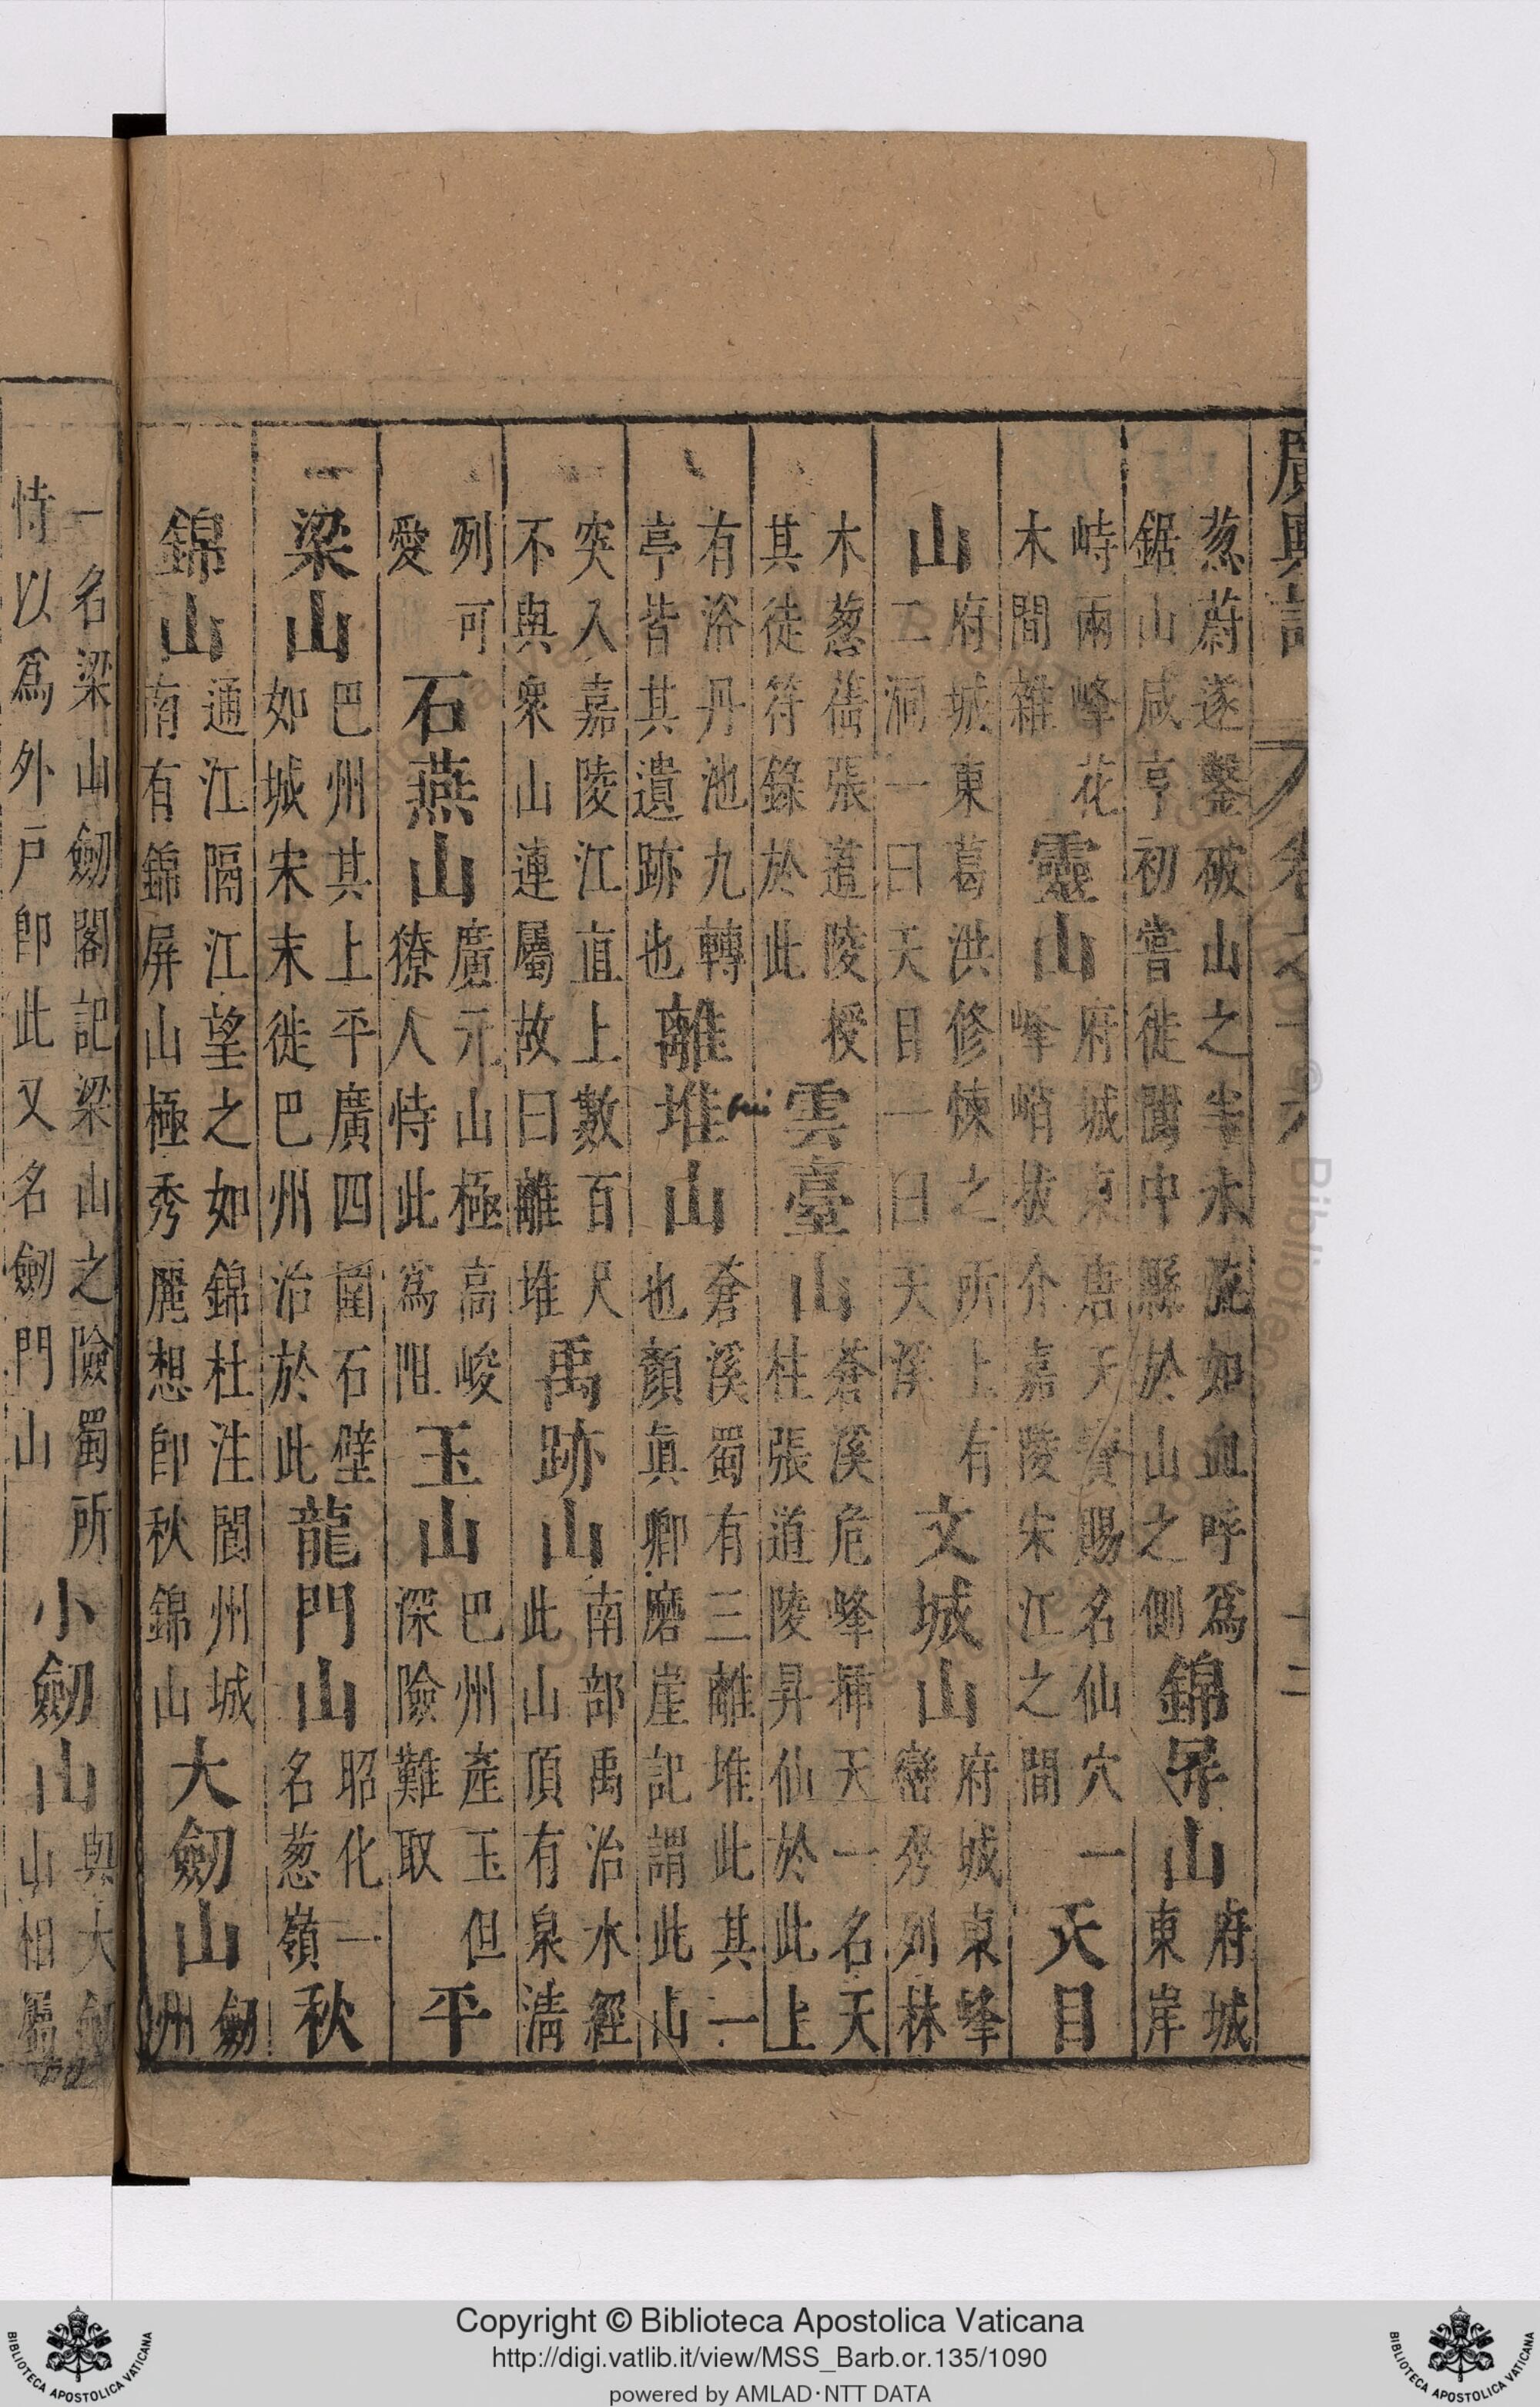 廣輿記 卷之十六 十二
葱蔚遂鑿破山之半水流如血呼爲
鋸山咸亨初嘗徙閬中縣於山之側
錦屏山
府城
東岸
峙兩峰花
木間雜
靈山
府城東唐天寶賜名仙穴一
峰峭拔介嘉陵宋江之間
天目
山
府城東葛洪修煉之所上有
二洞一曰天目一曰天溪
文城山
府城東峰
巒秀列林
木葱蒨張道陵授
其徒符錄於此
雲臺山
蒼溪危峰揷天一名天
柱張道陵昇仙於此上
有浴丹池九轉
亭皆其遺跡也
離堆山
蒼溪蜀有三離堆此其一
也顏眞卿磨崖記謂此山
突入嘉陵江直上數百尺
不與衆山連屬故曰離堆
禹跡山
南部禹治水經
此山頂有泉淸
列可
愛
石燕山
廣元山極高峻
獠人恃此爲阻
玉山
巴州產玉但
深險難取
平
梁山
巴州其上平廣四圍石壁
如城宋末徙巴州治於此
龍門山
昭化一
名葱嶺
秋
錦山
通江隔江望之如錦杜注閬州城
南有錦屏山極秀麗想卽秋錦山
大劒山
劒
州
一名梁山劒閣記梁山之險蜀所
恃以爲外戶卽此又名劒門山
小劒山
與大劒
山相屬
Copyright © Biblioteca Apostolica Vaticana
http://digi.vatlib.it/view/MSS_Barb.or.135/1090
powered by AMLAD·NTT DATA
BIBLIOTECA APOSTOLICA VATICANA
BIBLIOTECA APOSTOLICA VATICANA